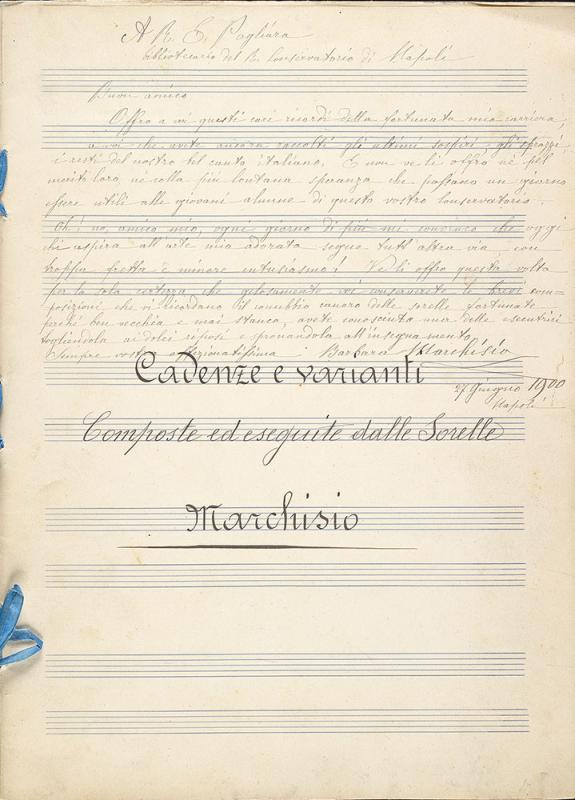 A R. E. Pagliara
bibliotecario del R. Conservatorio di Napoli
Buon amico
Offro a voi questi cari ricordi della fortunata mia carriera,
a voi che avete ancora raccolti gli ultimi sospiri, gli sprazzi
i resti del nostro bel canto italiano. E non ve li offro nè pel
merito loro, nè colla più lontana speranza che possano un giorno
essere utili alle giovani alunne di questo vostro Conservatorio.
Oh! no, amico mio, ogni giorno di più mi convinco che oggi
chi aspira all'arte mia adorata segue tutt'altra via, con
troppa fretta e minore entusiasmo! Ve li offro questa volta
per la sola certezza che gelosamente voi conserverete le brevi com-
posizioni che vi ricordano il connubio canoro delle sorelle fortunate
perchè ben vecchia e mai stanca, avete conosciuta una delle esecutrici
togliendola ai dolci riposi e spronandola all'insegnamento
Sempre vostra affezionatissima Barbara Marchisio
27 Giugno 1900
Napoli
Cadenze e varianti
Composte ed eseguite dalle Sorelle
Marchisio